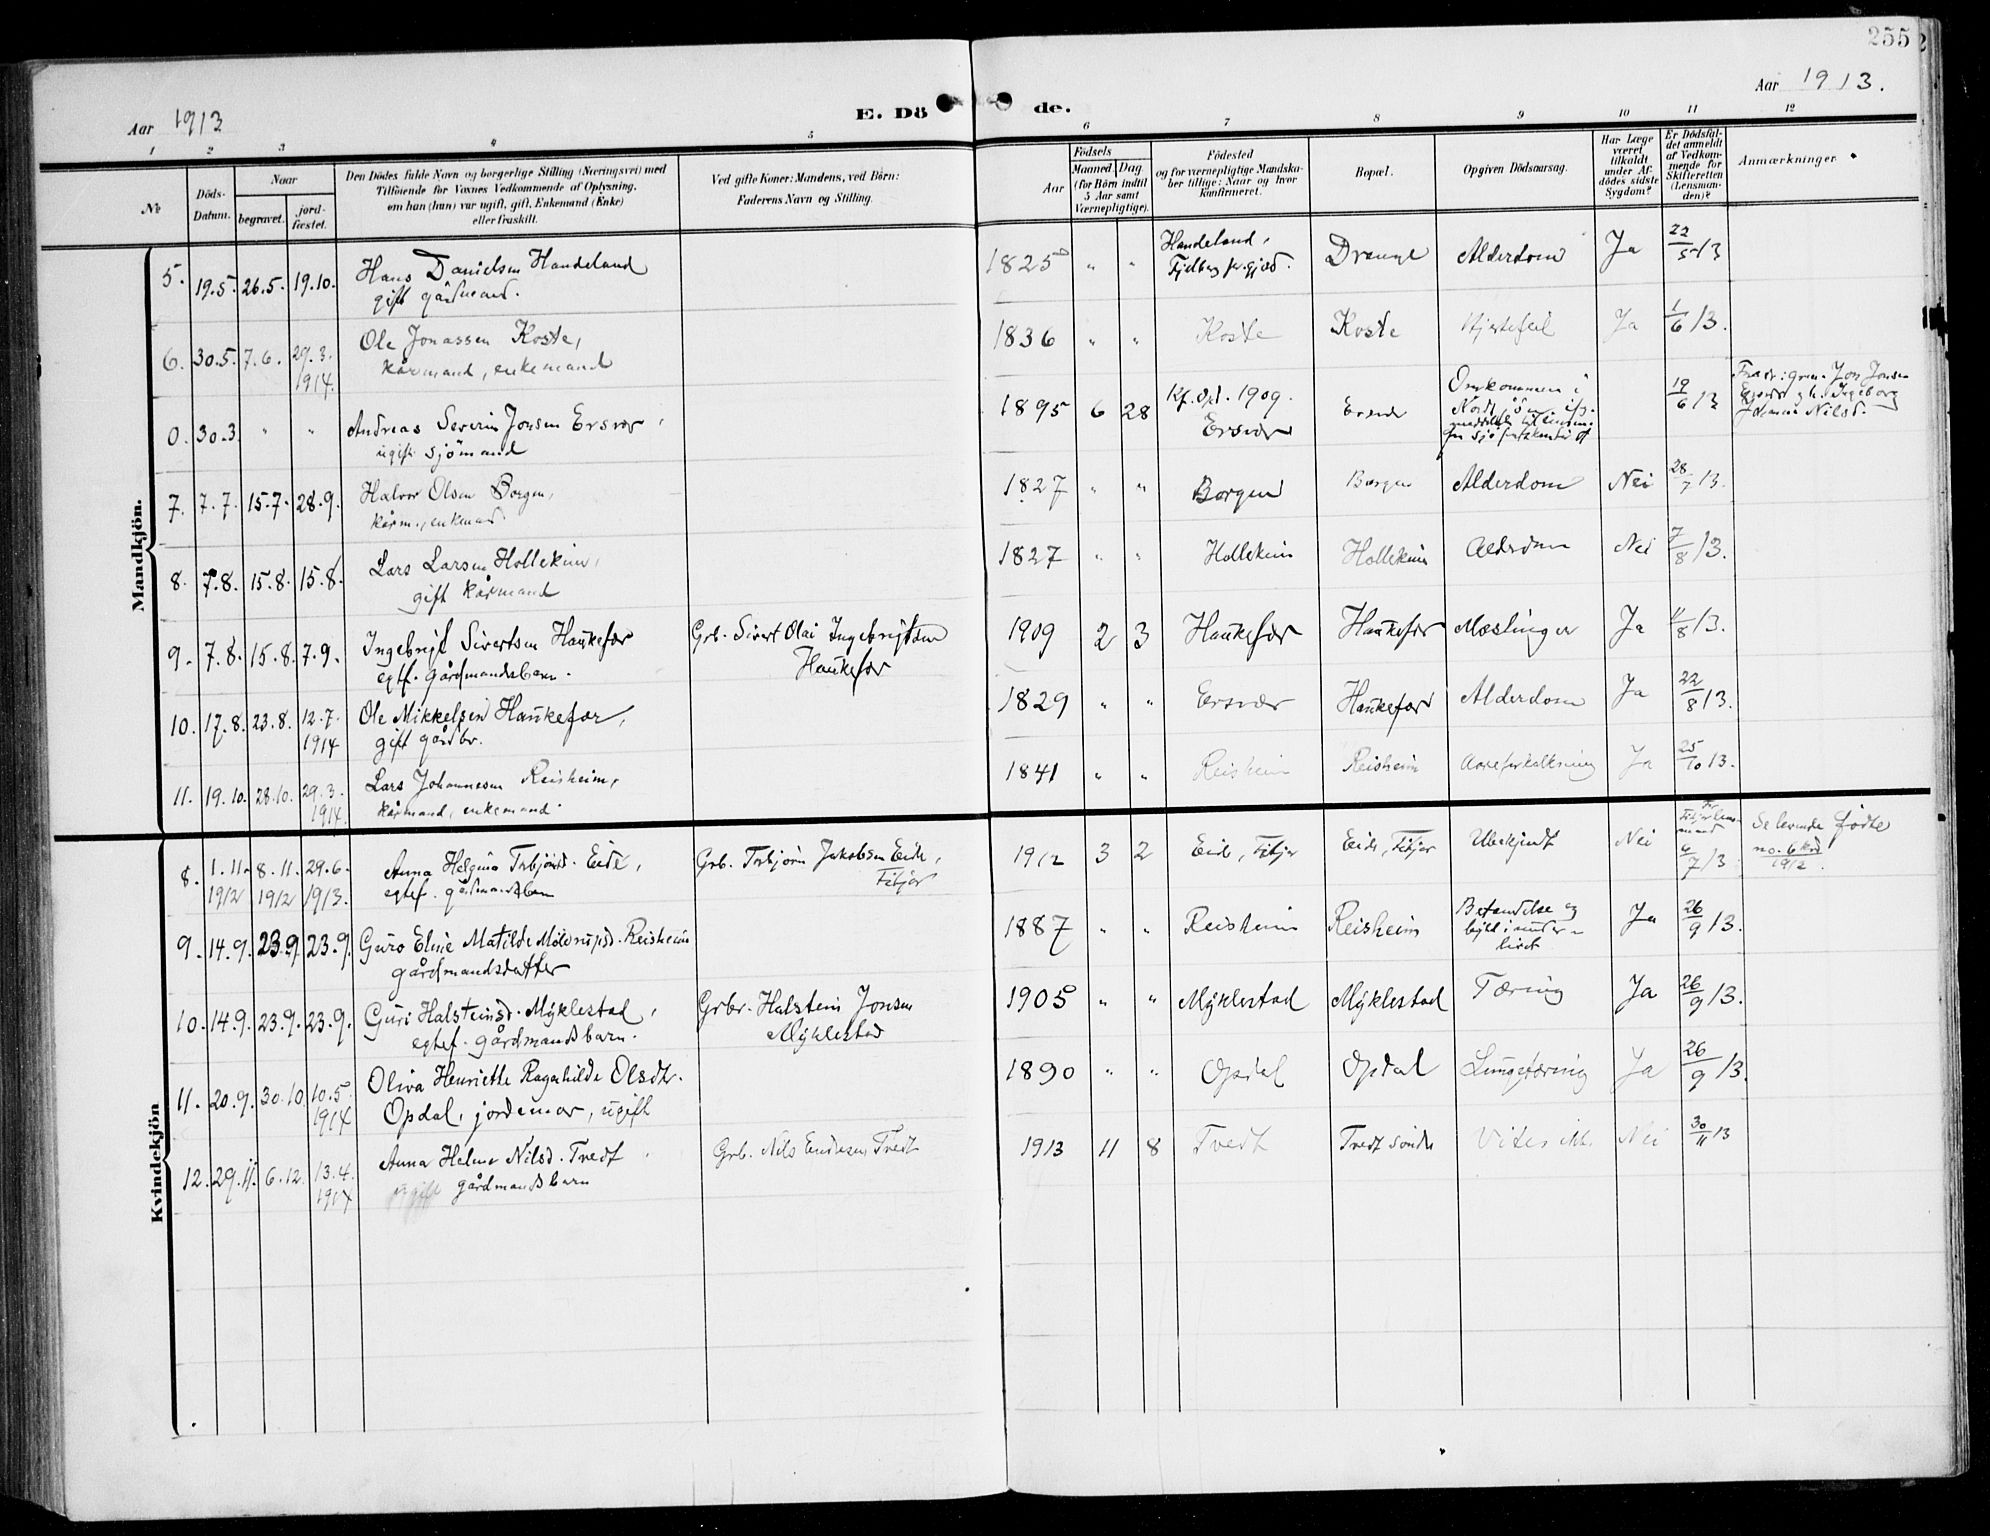 255
Aar 1913
E. Dö de.
Aar 1913.
1 2 3 4 5 6 7 8 9 10 11 12
No
Döds-Datum.
Naar
begravet.
jord-fæstet.
Den Dödes fulde Navn og borgerlige Stilling (Næringsvei) med
Tilföiende for Voxnes Vedkommende af Oplysning,
om han (hun) var ugift, gift, Enkemand (Enke)
eller fraskilt.
Ved gifte Koner: Mandens, ved Börn:
Faderens Navn og Stilling.
Födsels
Aar
Maaned Dag
(for Börn indtil
5 Aar samt
Værnepligtige).
Födested
og for værnepligtige Mandska-
ber tillige: Naar og hvor
Konfirmeret.
Bopæl.
Opgiven Dödsaarsag.
Har Læge
været
tilkaldt
under Af-
dödes sidste
Sygdom?
Er Dödsfal-
det anmeldt
af Vedkom-
mende for
Skifteretten
(Lensman-
den)?
Anmærkninger.
Mandkjön.
5. 19.5. 26.5. 19.10. Hans Danielsen Handeland
gift gårdmand.
1825 " " Handeland, Drange Alderdom Ja 22/5 13
6. 30.5. 7.6. 29.3. 1914. Ole Jonassen Koste,
kårmand, enkemand
1836 " " Koste Koste Hjertefeil Ja 1/6 13.
0. 30.3. " " Andreas Severin Jonsen Ersvær,
ugift sjömand
1895 6 28 Kf. Opd. 1909. Ersvær Ersvær Omkommen i Nordsjöen 19/6 13
7. 7.7. 15.7. 28.9. Halvor Olsen Borgen,
kårm., enkemand
1827 " " Borgen Borgen Alderdom Nei 28/7 13.
8. 7.8. 15.8. 15.8. Lars Larsen Hollekim,
gift kårmand
1827 " " Hollekim Hollekim Alderdom Nei 7/8 13.
9. 7.8. 15.8. 7.9. Ingebrigt Sivertsen Haukefær
egtf. gårdmandsbarn.
Grb. Sivert Olai Ingebrigtsen
Haukefær
1909 2 3 Haukefær Haukefær Mæslinger Ja 11/8 13.
10. 17.8. 23.8. 12.7. 1914 Ole Mikkelsen Haukefær,
gift gårdbr.
1829 " " Ersvær Haukefær Alderdom Ja 22/8 13.
11. 19.10. 28.10. 29.3. 1914. Lars Johannesen Reisheim,
kårmand, enkemand.
1841 " " Reisheim Reisheim Aareforkalkning Ja 25/10 13.
Kvindekjön
8. 1.11. 1912 8.11. 1912 29.6. 1913. Anna Helgina Torbjörnsd. Eide,
egtef. gårdmandsbarn
Grb. Torbjörn Jakobsen Eide,
Fitjar
1912 3 2 Eide, Fitjar Eide, Fitjar Ubekjendt Nei 4/7 13 Se levende födte
no. 6 kvd
1912.
9. 14.9. 23.9. 23.9. Guro Eline Matilde Möldrupsd. Reisheim
gårdmandsdatter
1887 " " Reisheim Reisheim Betændelse og
byld i under-
livet Ja 26/9 13.
10. 14.9. 23.9. 23.9. Guri Halsteinsd. Myklestad,
egtef. gårdmandsbarn.
Grbr. Halstein Jonsen
Myklestad
1905 " " Myklestad Myklestad Tæring Ja 26/9 13.
11. 20.9. 30.10. 10.5. 1914 Oliva Henriette Ragnhilde Olsdtr.
Opdal, jordemor, ugift
1890 " " Opdal Opdal Lungetæring Ja 26/9 13.
12. 29.11. 6.12. 13.4. 1914 Anna Helene Nilsd. Tvedt
ugift gårdmandsbarn
Grb. Nils Endresen Tvedt
1913 11 8 Tvedt Tvedt söndre Vites ikke. Nei 30/11 13